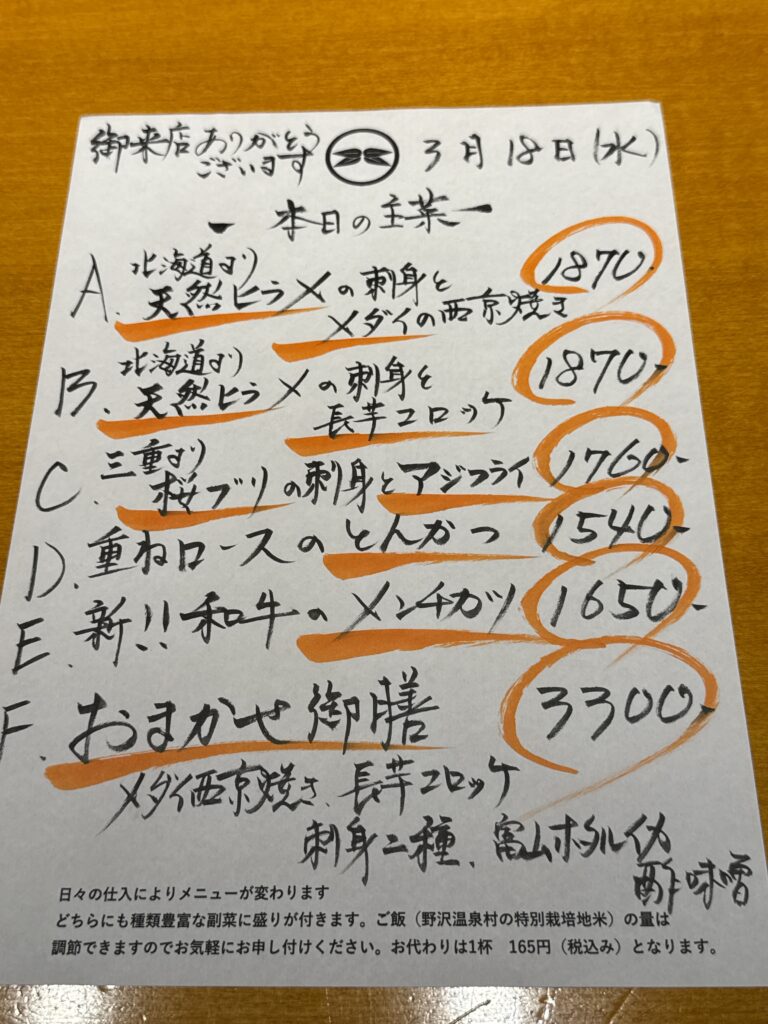 御来店ありがとう
ございます
3月18日(水)
ー 本日の主菜 ー
A. 北海道より
天然ヒラメの刺身と
メダイの西京焼き
1870-
B. 北海道より
天然ヒラメの刺身と
長芋コロッケ
1870-
C. 三重より
桜ブリの刺身とアジフライ 1760-
D. 重ねロースのとんかつ 1540-
E. 新!! 和牛のメンチカツ 1650-
F. おまかせ御膳 3300-
メダイ西京焼き、長芋コロッケ
刺身二種、富山ホタルイカ
酢味噌
日々の仕入によりメニューが変わります
どちらにも種類豊富な副菜に盛りが付きます。ご飯（野沢温泉村の特別栽培地米）の量は
調節できますのでお気軽にお申し付けください。お代わりは1杯　165円（税込み）となります。